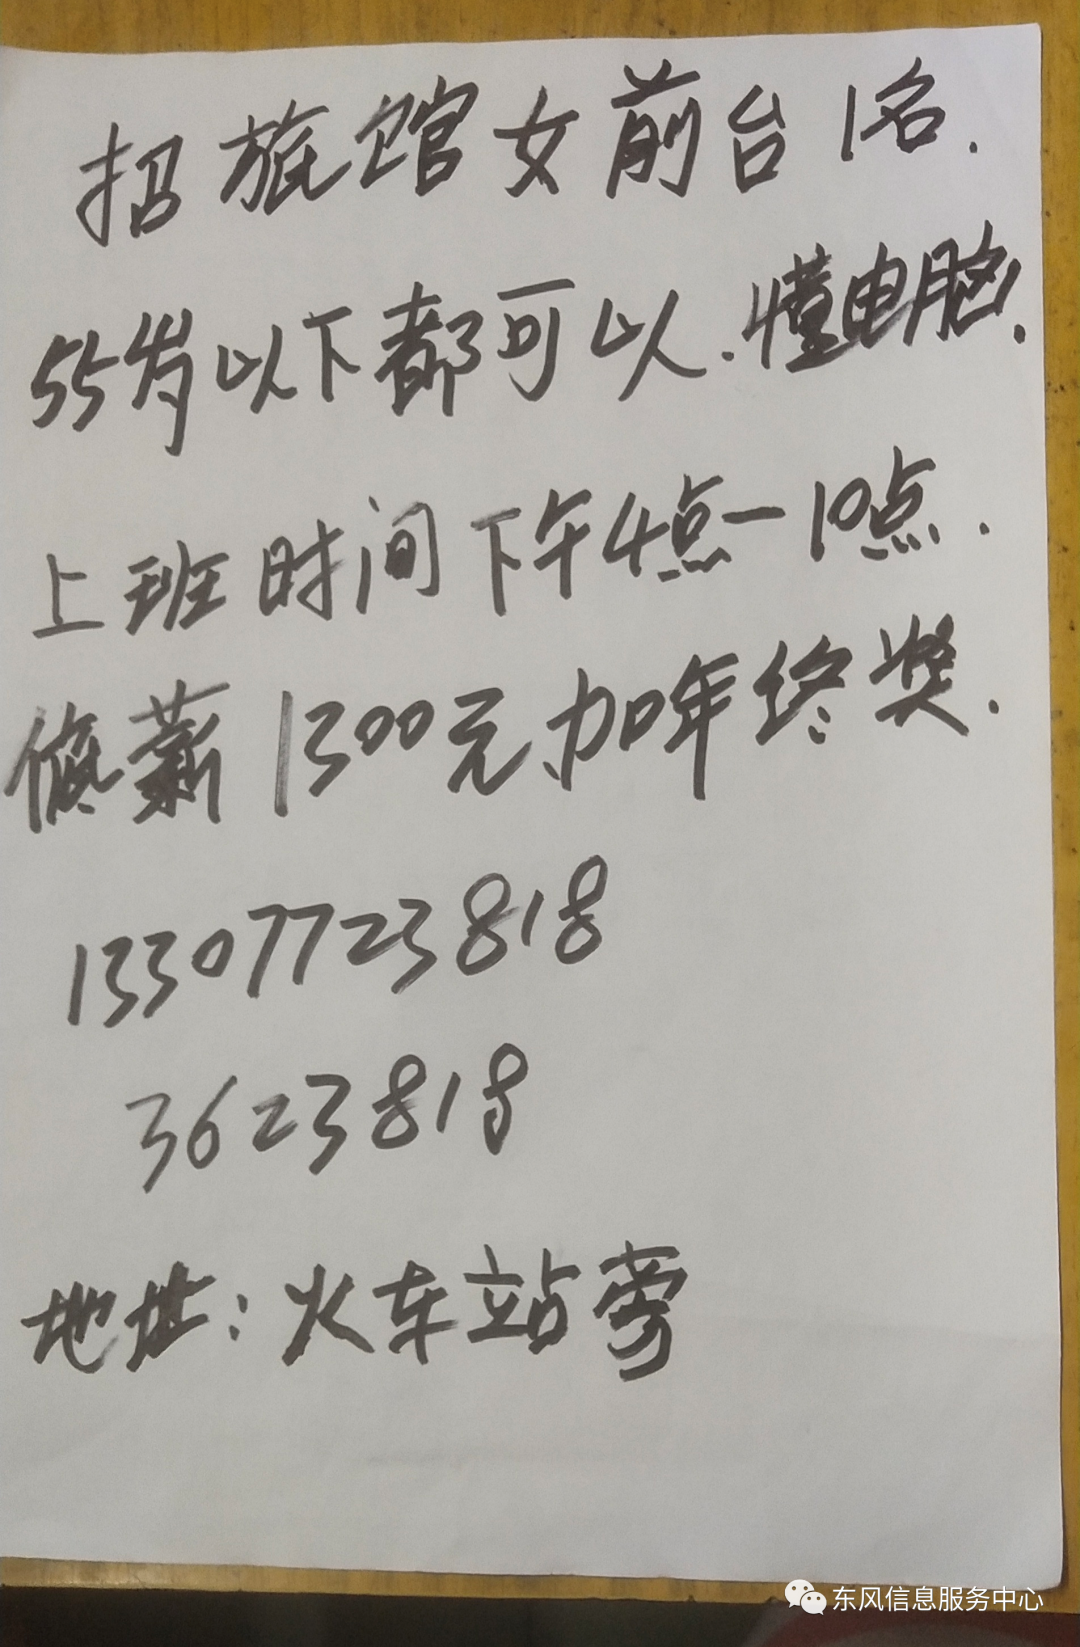 招旅馆女前台1名.
55岁以下都可以.懂电脑.
上班时间下午4点一10点.
底薪1300元加年终奖.
13307723818
3623818
地址:火车站旁
东风信息服务中心